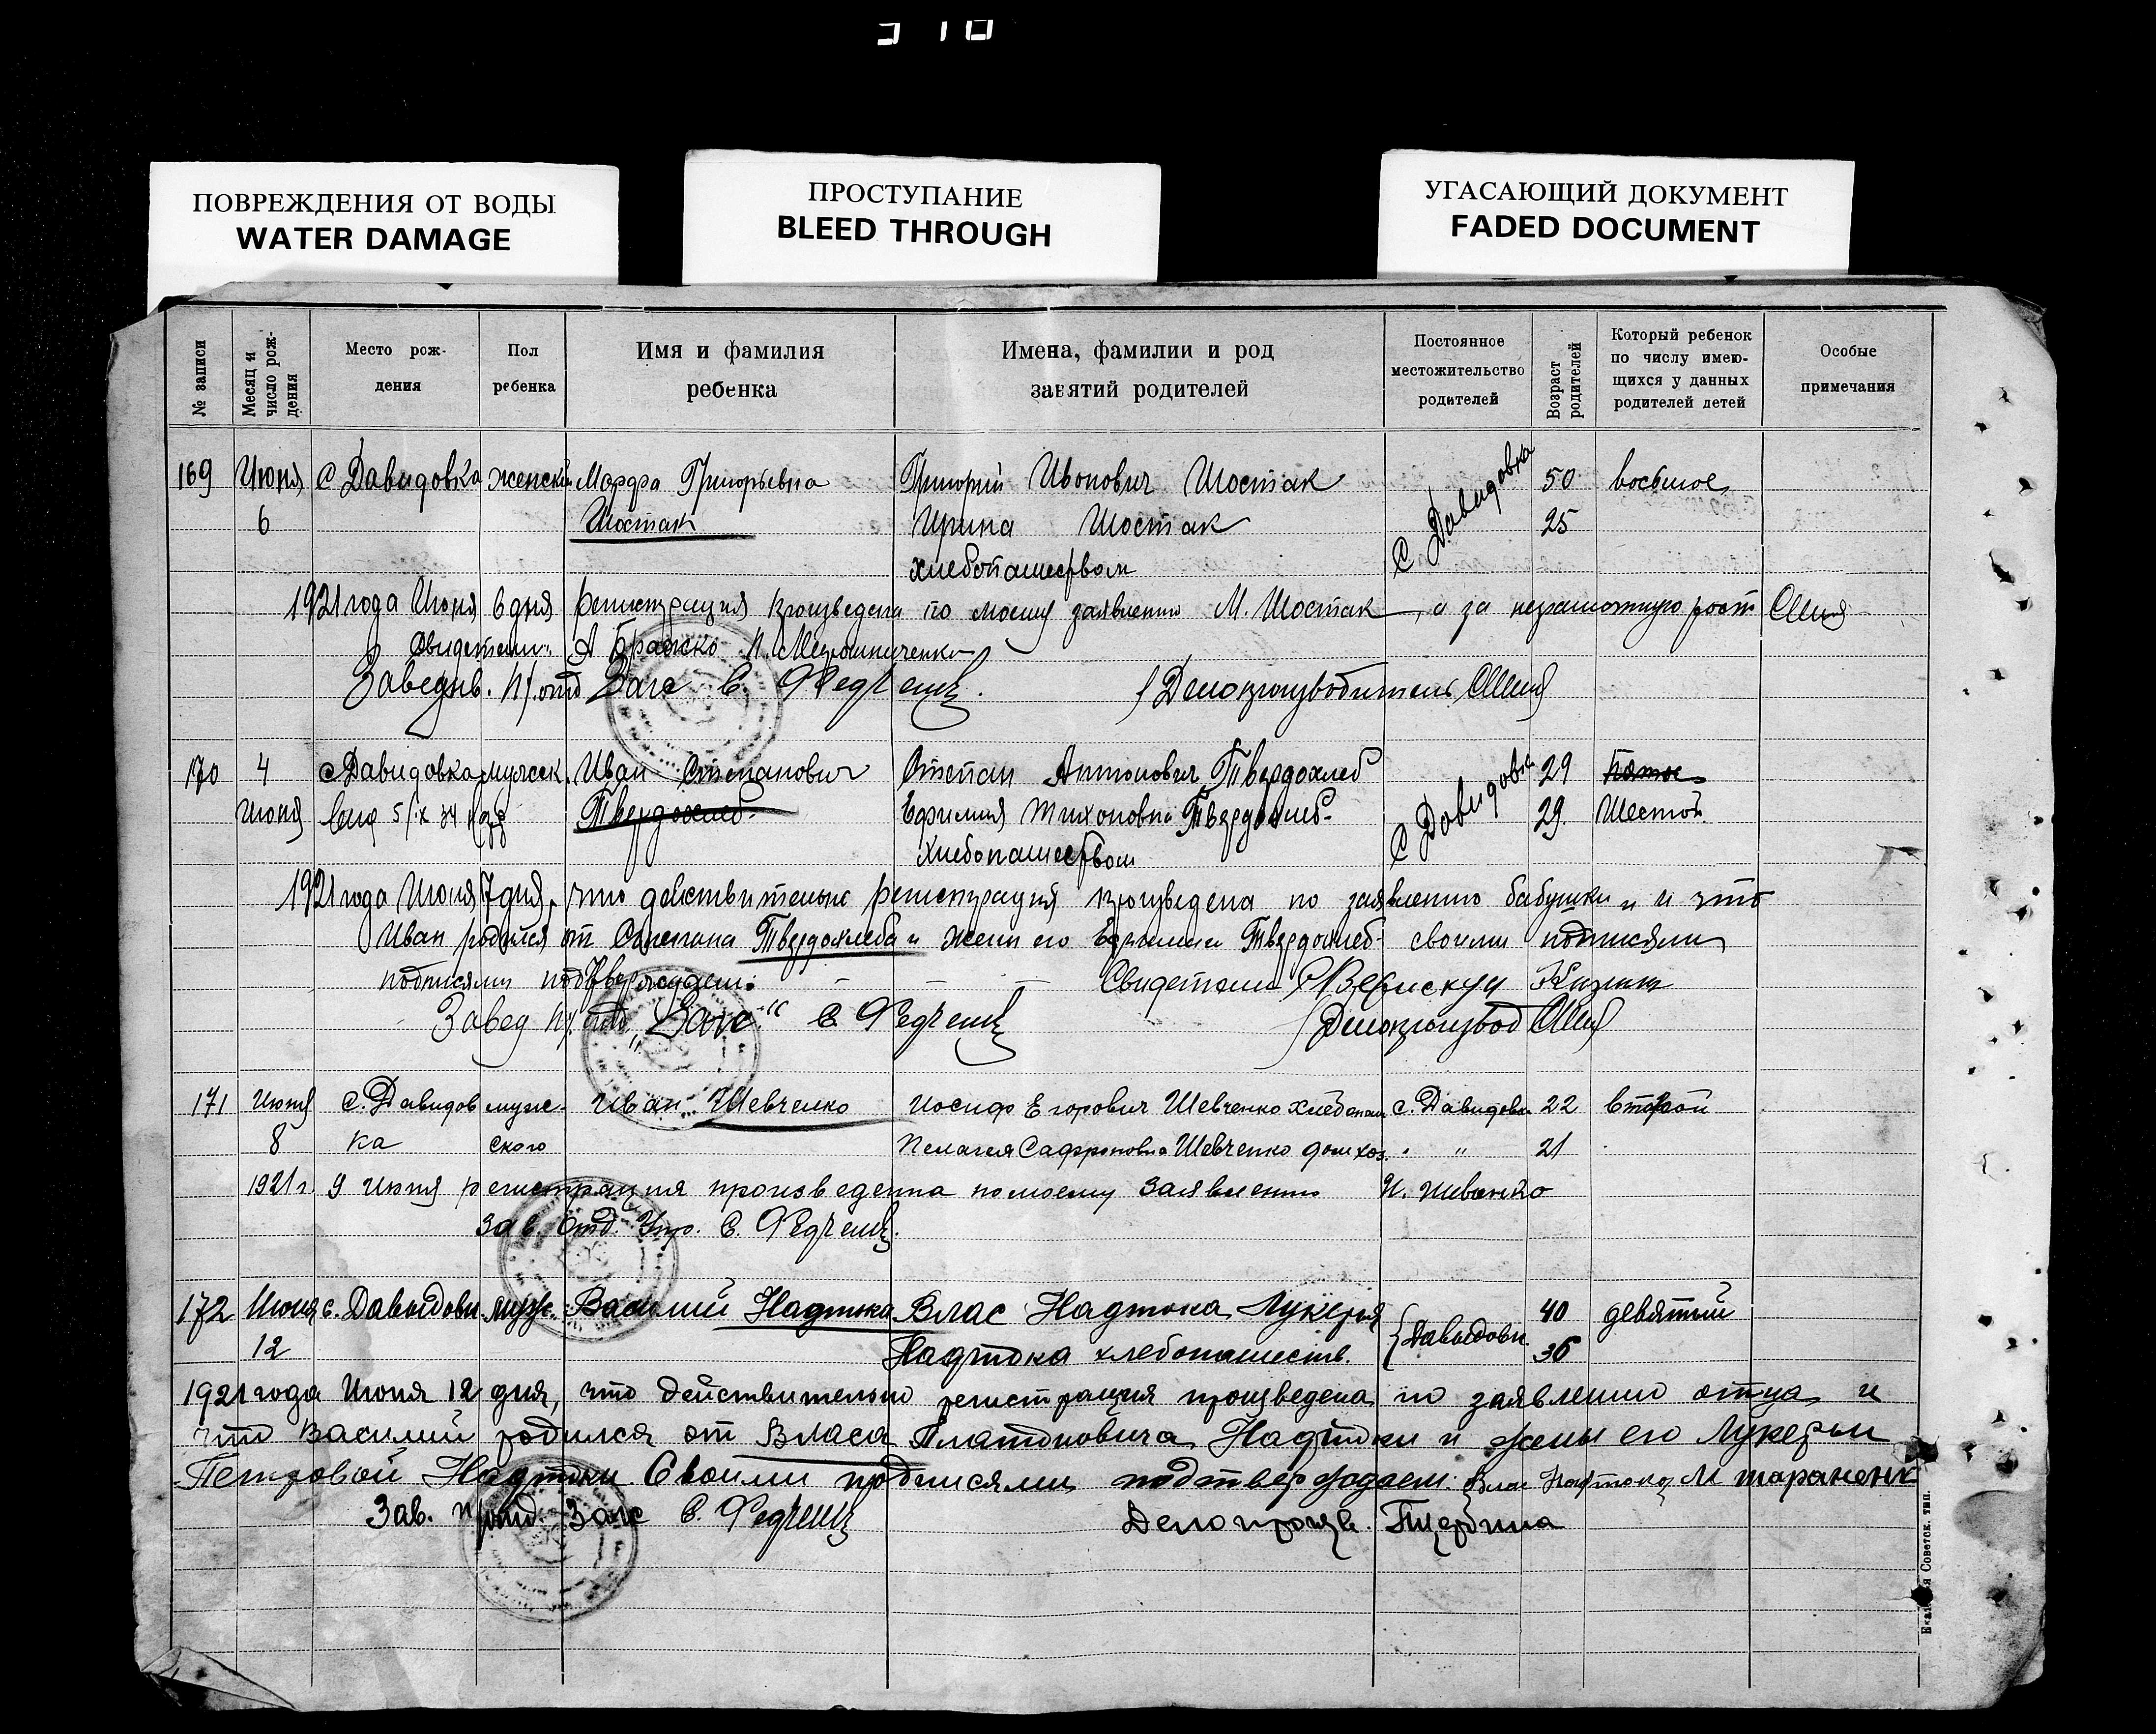 ПОВРЕЖДЕНИЯ ОТ ВОДЫ
WATER DAMAGE
ПРОСТУПАНИЕ
BLEED THROUGH
УГАСАЮЩИЙ ДОКУМЕНТ
FADED DOCUMENT
№ записи
Месяц и число рож-дения
Место рож-дения
Пол ребенка
Имя и фамилия ребенка
Имена, фамилии и род занятий родителей
Постоянное местожительство родителей
Возраст родителей
Который ребенок по числу имею-щихся у данных родителей детей
Особые примечания
169 Июня с Давидовка женский Марфа Григорьевна Григорий Шостак с Давидовка 50 восьмое
6 Шостак Ирина Шостак 25
хлебопашеством
1921 года Июня 6 дня регистрация произведена по моему заявлению М. Шостак, а за неграмотную
свидетели А Бражко Мирошниченко
Заведыв. отд Загс С. Делопроизводитель
170 4 с Давидовка мужск. Иван Степанович Степан Антонович Твердохлеб с Давидовк 29 Пятое
Июня 5/ix 34 Твердохлеб Ефимия Тихоновна Твердохлеб 29. Шестой
Хлебопашеством
1921 года Июня 7 дня, что действительно регистрация произведена по заявлению бабушки и что
Иван родился от Степана Твердохлеба и жены его Ефимии Твердохлеб своими подписями
подписями подтверждаем. Свидетели
Завед отд „Загс“ С Делопроизвод
171 Июня с. Давидов муже- Иван Шевченко Иосиф Егорович Шевченко хлебопаш с. Давидовк 22 второй
8 ка ского Пелагея Сафроновна Шевченко домхоз. " 21
1921 г 9 июня регистрация произведена по моему заявлению
Зав. Отд. Упр. С.
172 Июня с. Давыдовк мужс. Василий Надтока Влас Надтока Лукерия Давыдовк 40 девятый
12 Надтока хлебопашеств. 36
1921 года Июня 12 дня, что действительно регистрация произведена по заявлению отца и
что Василий родился от Власа Платоновича Надтоки и жены его Лукерьи
Петровой Надтоки Своими подписями подтверждаем. Влас Надтока М тараненк
Зав. отд. Загс С. Делопроизв. Щербина
Советск. тип.